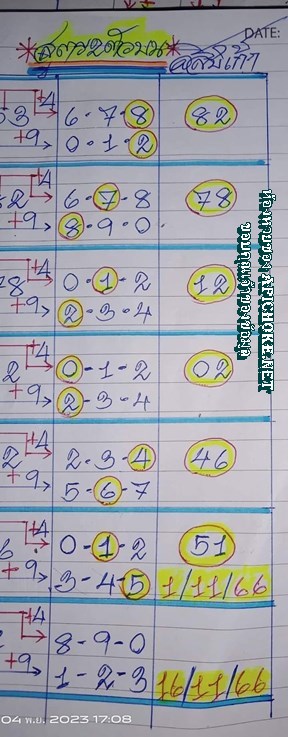 DATE:
*สูตรบนตัวบน*
+4 6-7-8 82
53
+9 0-1-2
+4 6-7-8 78
2
+9 8-9-0
+4 0-1-2 12
8
+9 2-3-4
+4 0-1-2 02
2
+9 2-3-4
+4 2-3-4 46
2
+9 5-6-7
+4 0-1-2 51
6
+9 3-4-5 1/11/66
+4 8-9-0
+9 1-2-3 16/11/66
04 พ.ย. 2023 17:08